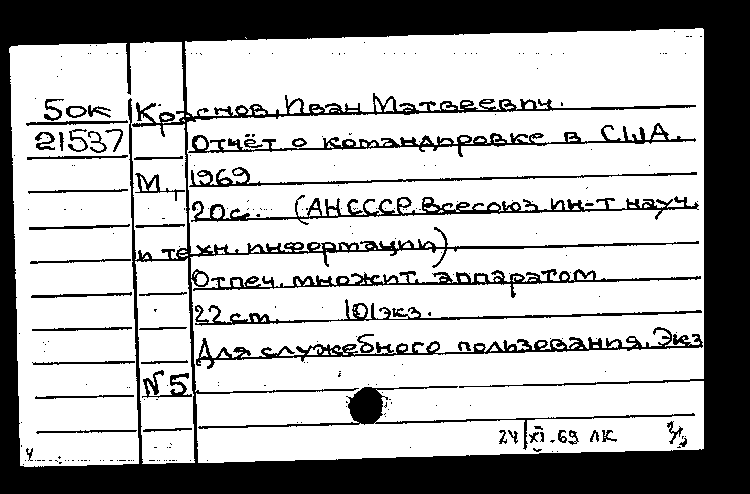 50к Краснов, Иван Матвеевич.
21537 Отчёт о командировке в США.
М., 1969
20с. (АН СССР. Всесоюз ин-т науч.
и техн. информации).
Отпеч. множит. аппаратом
22 см. 101экз.
Для служебного пользования. Экз
№5
24/XI-69 ЛК
ч